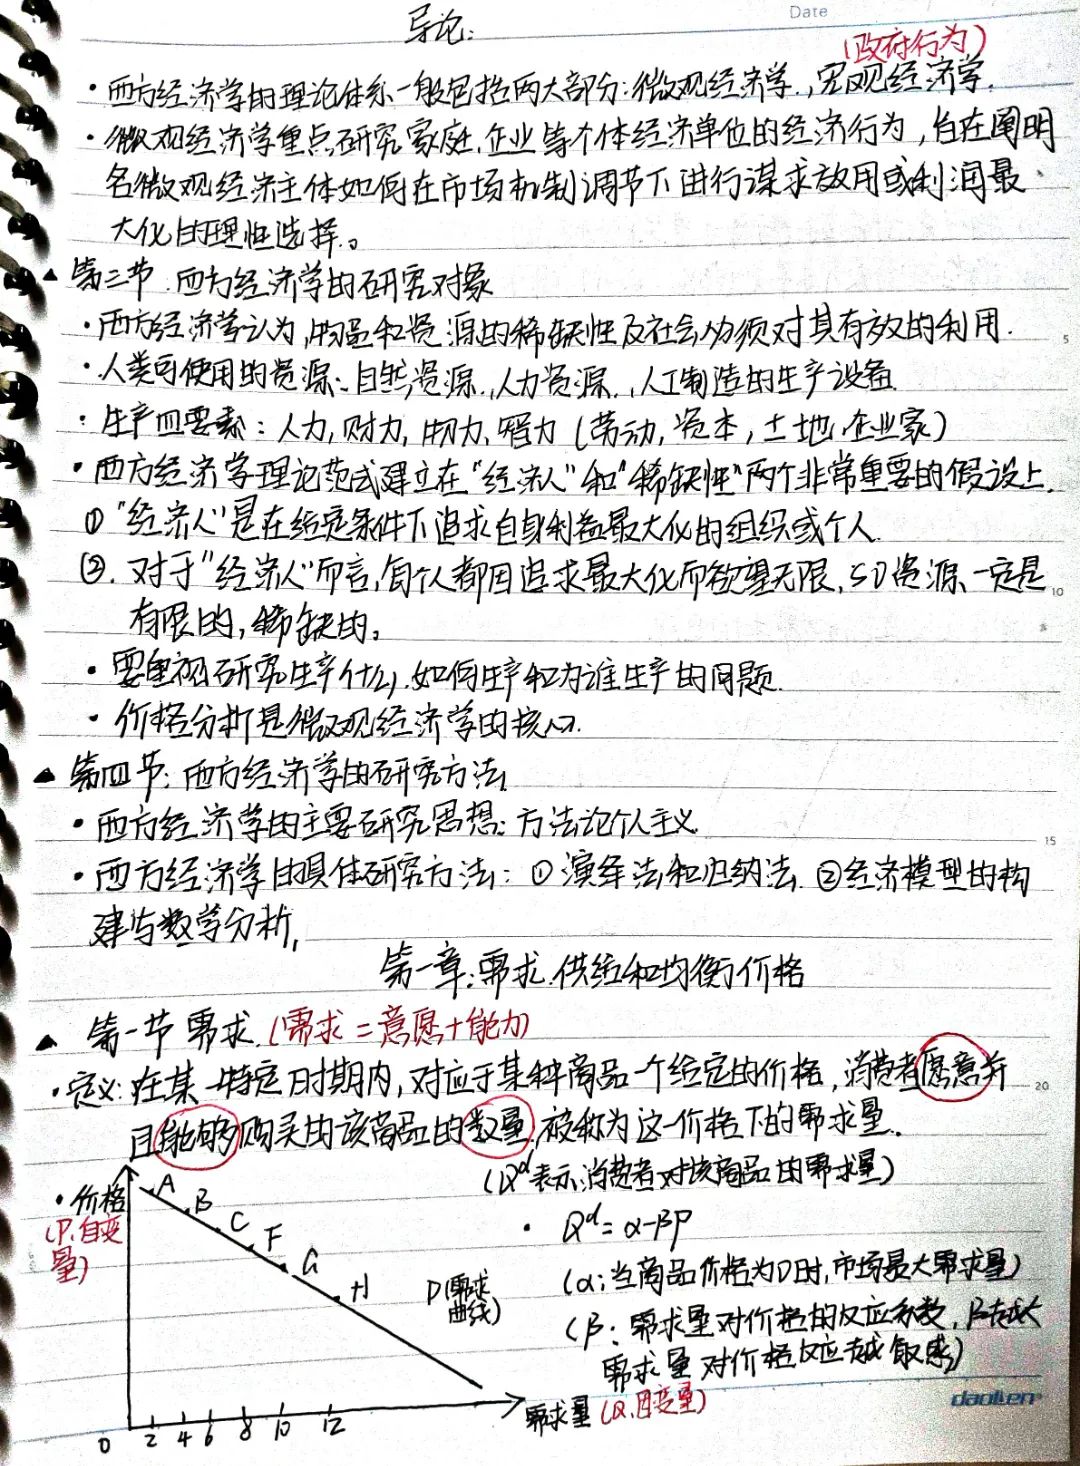 Date
导论:
(政府行为)
·西方经济学的理论体系一般包括两大部分:微观经济学,宏观经济学.
·微观经济学重点研究家庭、企业等个体经济单位的经济行为,旨在阐明
各微观经济主体如何在市场机制调节下进行谋求效用或利润最
大化的理性选择。
▲第三节.西方经济学的研究对象
·西方经济学认为,物品和资源的稀缺性及社会必须对其有效的利用.
·人类可使用的资源:自然资源、人力资源、人工制造的生产设备
·生产四要素:人力,财力,物力,智力(劳动,资本,土地,企业家)
·西方经济学理论范式建立在"经济人"和"稀缺性"两个非常重要的假设上.
①"经济人"是在给定条件下追求自身利益最大化的组织或个人
②.对于"经济人"而言,每个人都因追求最大化而欲望无限,SO资源一定是
有限的,稀缺的。
·要重视研究生产什么.如何生产和为谁生产的问题.
·价格分析是微观经济学的核心.
▲第四节:西方经济学的研究方法
·西方经济学的主要研究思想:方法论个人主义
·西方经济学的具体研究方法:①演绎法和归纳法.②经济模型的构
建与数学分析,
第一章:需求.供给和均衡价格
▲第一节需求.(需求=意愿+能力)
·定义:在某一特定时期内,对应于某种商品一个给定的价格,消费者愿意并
且能够购买的该商品的数量,被称为这一价格下的需求量.
(Qᵈ表示消费者对该商品的需求量)
·价格
(P,自变
量)
A
B
C
F
G
H
D(需求
曲线)
·Qᵈ=α-βP
(α:当商品价格为0时,市场最大需求量)
(β:需求量对价格的反应系数,β越大
需求量对价格反应越敏感)
需求量(Q,因变量)
0 2 4 6 8 10 12
5
10
15
20